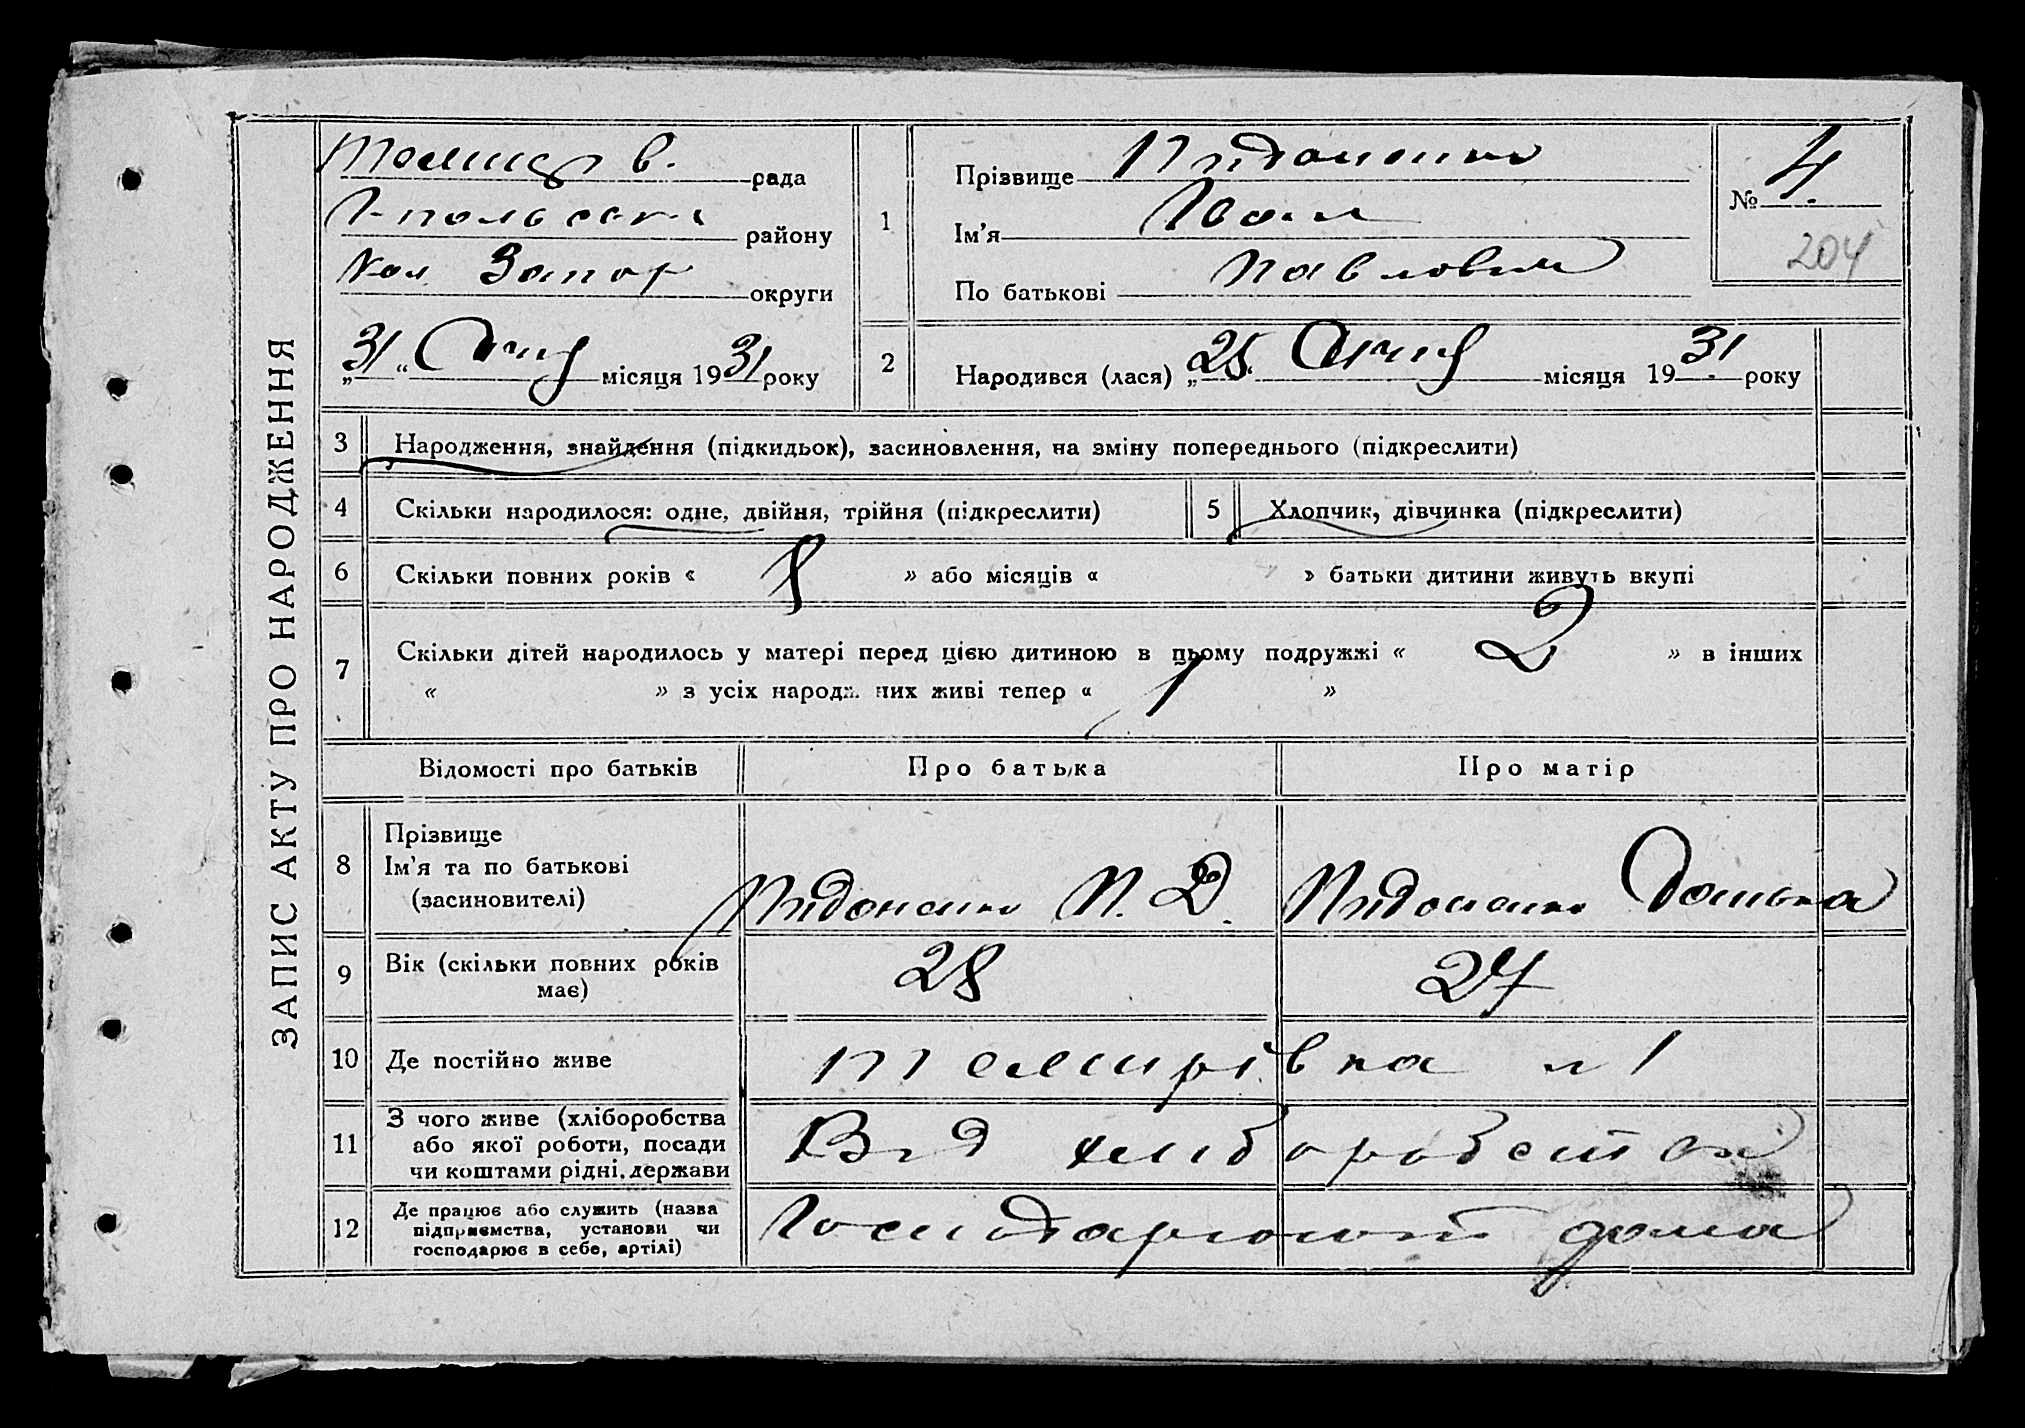 ЗАПИС АКТУ ПРО НАРОДЖЕННЯ
рада
району
Запор округи
„31“ Січня місяця 1931 року
1
Прізвище
Ім'я Іван
По батькові Павлович
№ 4
204
2
Народився (лася) „25“ Січня місяця 1931 року
3 Народження, знайдення (підкидьок), засиновлення, на зміну попереднього (підкреслити)
4 Скільки народилося: одне, двійня, трійня (підкреслити)
5 Хлопчик, дівчинка (підкреслити)
6 Скільки повних років « 8 » або місяців « » батьки дитини живуть вкупі
7 Скільки дітей народилось у матері перед цією дитиною в цьому подружжі « 2 » в інших
« » з усіх народж. них живі тепер « 1 »
Відомості про батьків
Про батька
Про матір
8 Прізвище
Ім'я та по батькові
(засиновителі)
П. Д.
9 Вік (скільки повних років
має)
28
27
10 Де постійно живе
Темирівка n 1
11 З чого живе (хліборобства
або якої роботи, посади
чи коштами рідні, держави
Від хліборобства
12 Де працює або служить (назва
підприємства, установи чи
господарює в себе, артілі)
дома